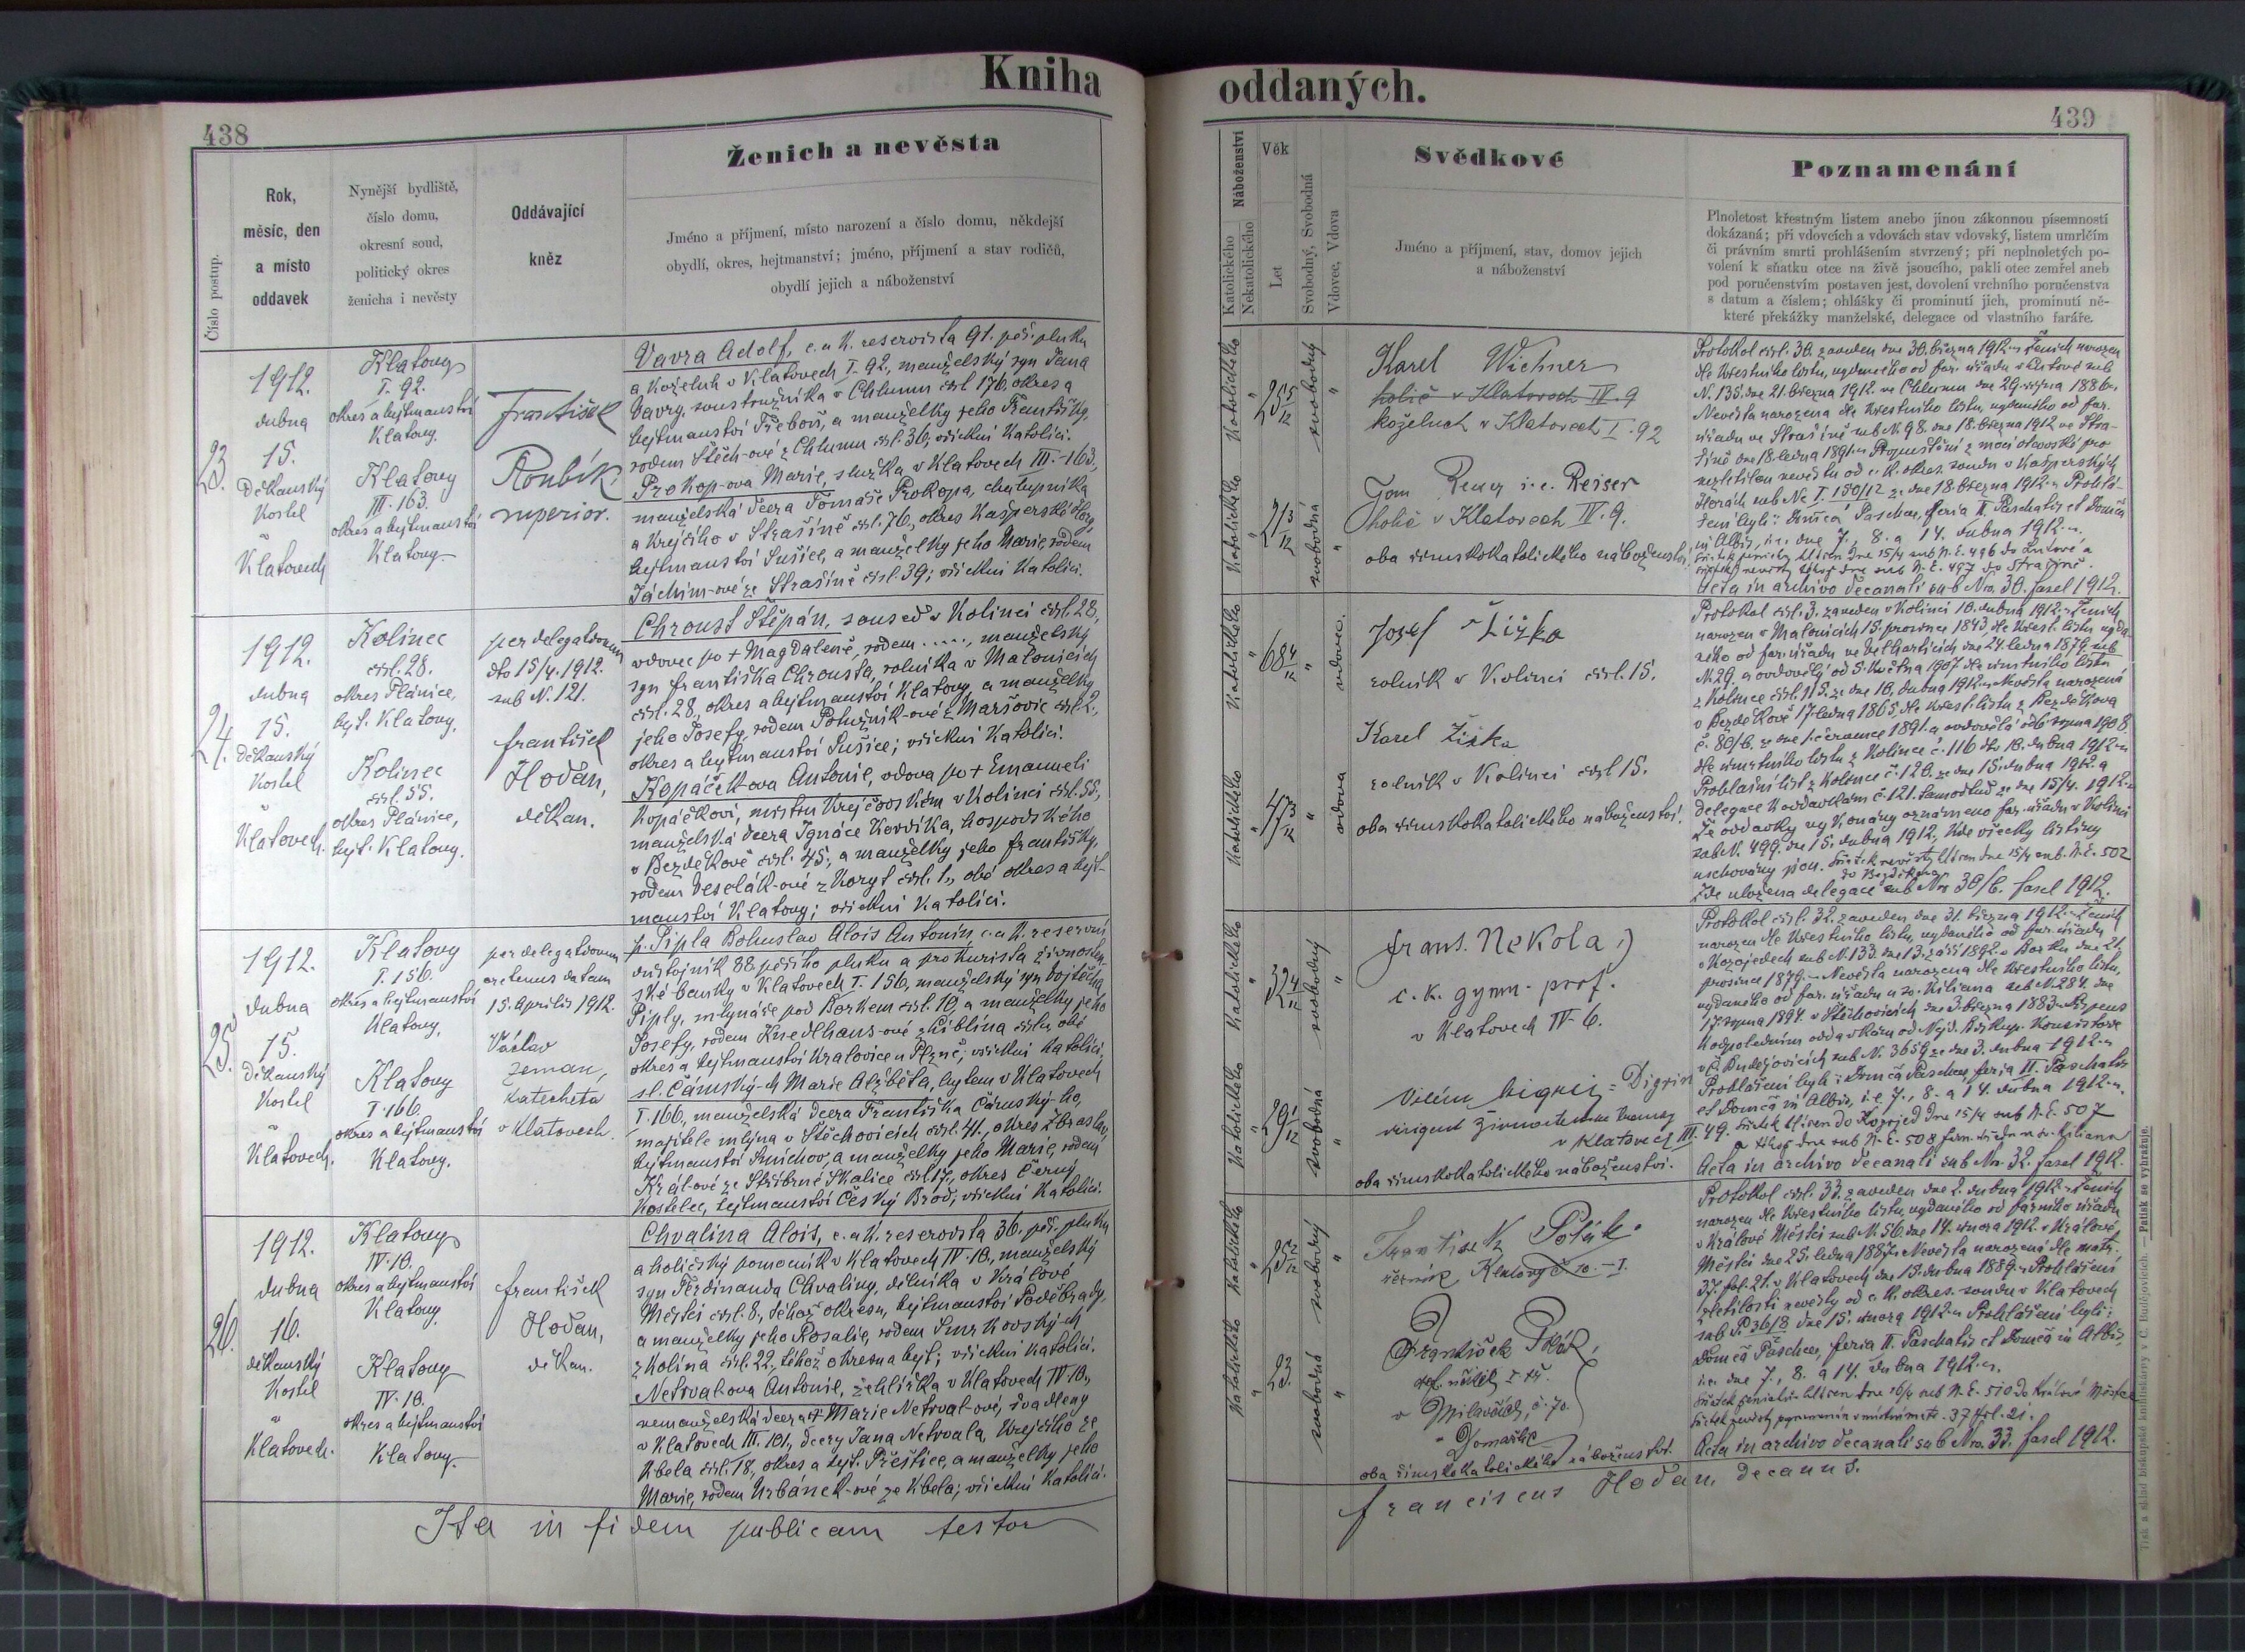 Kniha
438
Číslo postup.
Rok,
měsíc, den
a místo
oddavek
Nynější bydliště,
číslo domu,
okresní soud,
politický okres
ženicha i nevěsty
Oddávající
kněz
Ženich a nevěsta
Jméno a příjmení, místo narození a číslo domu, někdejší
obydlí, okres, hejtmanství; jméno, příjmení a stav rodičů,
obydlí jejich a náboženství
23.
1912.
dubna
15.
Děkanský
kostel
v
Klatovech
Klatovy
I. 92.
okres a hejtmanství
Klatovy.
Klatovy
III. 163.
okres a hejtmanství
Klatovy
František
Roubík,
superior.
Vavra Adolf, c. a k. reservista 91. pěš. pluku
a koželuh v Klatovech I. 92., manželský syn Jana
Vavry, soustružníka v Chlumu čísl. 176. okres a
hejtmanství Třeboň, a manželky jeho Františky,
rodem Štěch-ové z Chlumu čísl. 36; všickni katolíci.
Prokop-ova Marie, služka v Klatovech III.-163,
manželská dcera Tomáše Prokopa, chalupníka
a krejčího v Strašíně čísl. 76., okres Kašperské Hory,
hejtmanství Sušice, a manželky jeho Marie, rodem
Jáchim-ové ze Strašíně čísl. 39; všickni katolíci.
24.
1912.
dubna
15.
Děkanský
kostel
v
Klatovech.
Kolinec
čsl. 28.
okres Plánice,
hejt. Klatovy.
Kolinec
čsl. 55.
okres Plánice,
hejt. Klatovy.
per delegationem
dto 15/4. 1912.
sub N. 121.
František
Hoďan,
děkan.
Chroust Štěpán, soused v Kolinci čsl. 28,
vdovec po + Magdaleně, rodem ....., manželský
syn Františka Chrousta, rolníka v Malonicích
čsl. 28., okres a hejtmanství Klatovy, a manželky
jeho Josefy, rodem Polužník-ové z Maršovic čsl. 2.,
okres a hejtmanství Sušice; všickni katolíci.
Kopáčk-ova Antonie, vdova po + Emanueli
Kopáčkovi, mistru krejčovském v Kolinci čsl. 55,
manželská dcera Ignáce Korvika, hospodského
v Bezděkově čsl. 45., a manželky jeho Františky,
rodem Veselák-ové z Koryt čsl. 1., obé okres a hejt-
manství Klatovy; všickni katolíci.
25.
1912.
dubna
15.
Děkanský
kostel
v
Klatovech.
Klatovy
I. 156.
okres a hejtmanství
Klatovy,
Klatovy
I. 166.
okres a hejtmanství
Klatovy.
per delegationem
oretenus datam
15. Aprilis 1912.
Václav
Zeman,
katecheta
v Klatovech.
p. Pipla Bohuslav Alois Antonín, c. a k. reservní
důstojník 88. pěšího pluku a prokurista živnosten-
ské banky v Klatovech I. 156, manželský syn Vojtěcha
Piply, mlynáře pod Borkem čsl. 10, a manželky jeho
Josefy, rodem Knedlhans-ové z Liblína čísla, obé
okres a hejtmanství Kralovice u Plzně; všickni katolíci.
sl. Čámský-ch Marie Alžběta, bytem v Klatovech
I. 166., manželská dcera Františka Čámský-ho,
majitele mlýna v Štěchovicích čsl. 41., okres Zbraslav,
hejtmanství Smíchov, a manželky jeho Marie, rodem
Král-ové ze Stříbrné Skalice čsl. 17., okres Černý
Kostelec, hejtmanství Český Brod; všickni katolíci.
26.
1912.
dubna
16.
děkanský
kostel
v
Klatovech.
Klatovy
IV. 10.
okres a hejtmanství
Klatovy.
Klatovy
IV. 10.
okres a hejtmanství
Klatovy.
František
Hoďan,
děkan.
Chvalina Alois, c. a k. reservista 36. pěš. pluku
a holičský pomocník v Klatovech IV. 10., manželský
syn Ferdinanda Chvaliny, dělníka v Králově
Městci čsl. 8., téhož okresu, hejtmanství Poděbrady,
a manželky jeho Rosalie, rodem Smrkovský-ch
z Kolína čsl. 22., téhož okresu a hejt; všickni katolíci.
Netrval-ova Antonie, žehlířka v Klatovech IV. 10.,
nemanželská dcera + Marie Netrval-ové, švadleny
v Klatovech III. 101., dcery Jana Netrvala, krejčího ze
Kbela čsl. 18., okres a hejt. Přeštice, a manželky jeho
Marie, rodem Urbánek-ové ze Kbela; všickni katolíci.
Ita in fidem publicam testor
oddaných.
439
Náboženství
Katolického
Nekatolického
Věk
Let
Svobodný, Svobodná
Vdovec, Vdova
Svědkové
Jméno a příjmení, stav, domov jejich
a náboženství
Poznamenání
Plnoletost křestným listem anebo jinou zákonnou písemností
dokázaná; při vdovcích a vdovách stav vdovský, listem umrlčím
či právním smrti prohlášením stvrzený; při neplnoletých po-
volení k sňatku otce na živě jsoucího, pakli otec zemřel aneb
pod poručenstvím postaven jest, dovolení vrchního poručenstva
s datum a číslem; ohlášky či prominutí jich, prominutí ně-
které překážky manželské, delegace od vlastního faráře.
Katolického
25 5/12
svobodný
Katolického
21 3/12
svobodná
Karel Wichner
holič v Klatovech IV. 9
koželuh v Klatovech I. 92
i. e. Reiser
holič v Klatovech IV. 9.
oba římskokatolického náboženství.
Protokol čísl. 30. zaveden dne 30. března 1912. Ženich narozen
dle křestního listu, vydaného od far. úřadu v Lutové sub
N. 135. dne 21. března 1912. ve Chlumu dne 29. října 1886.
Nevěsta narozena dle křestního listu, vydaného od far.
úřadu ve Strašíně sub N. 98. dne 18. března 1912 ve Stra-
šíně dne 18. ledna 1891. Propuštění z moci otcovské pro
nezletilou nevěstu od c. k. okres. soudu v Kašperských
Horách sub Nc I. 150/12 ze dne 18. března 1912. Prohlá-
šení byli: Domca Paschae, feria II. Paschatis et Domca
in Albis, i. e. dne 7., 8. a 14. dubna 1912.
Acta in archivo decanali sub Nro. 30. fasel 1912.
Katolického
68 4/12
vdovec.
Katolického
47 3/12
vdova
Josef Žižka
rolník v Kolinci čsl. 15.
Karel Žižka
rolník v Kolinci čsl 15.
oba římskokatolického náboženství.
Protokol čsl. 3. zaveden v Kolinci 10. dubna 1912. Ženich
narozen v Malonicích 15. prosince 1843, dle křest. listu vyda-
ného od far. úřadu ve Velharticích dne 24. ledna 1879. sub
N. 29. a ovdovělý od 5. května 1907 dle úmrtního listu
z Kolince čsl. 115. ze dne 10. dubna 1912. Nevěsta narozená
v Bezděkově 17. ledna 1865, dle křest. listu z Bezděkova
č. 80/6. ze dne 1. července 1891. a ovdovělá od 6. srpna 1908.
dle úmrtního listu z Kolince č. 116 dto 10. dubna 1912.
Prohlašní list z Kolince č. 120. ze dne 15. dubna 1912. a
delegace k oddavkám č. 121. samotéž ze dne 15/4. 1912.
Že oddavky vykonány oznámeno far. úřadu v Kolinci
sub N. 499. dne 15. dubna 1912., kde všecky listiny
uschovány jsou.
Zde uložena delegace sub Nro 30/6. fasel 1912.
Katolického
32 4/12
svobodný
Katolického
29 1/12
svobodná
frans. Nekola
c. k. gymn. prof.
v Klatovech IV-6.
Vilém Digrin = Digrin
dirigent Živnostenské banky
v Klatovech III. 49.
oba římskokatolického náboženství.
Protokol čsl. 32. zaveden dne 31. března 1912. Ženich
narozen dle křestního listu, vydaného od far. úřadu
v Kozojedech sub N. 133. dne 13. září 1892. v Borku dne 21.
prosince 1879. Nevěsta narozena dle křestního listu,
vydaného od far. úřadu u sv. Kiliana sub N. 284. dne
17. srpna 1894. v Štěchovicích dne 3. března 1883. Dispens
k odpoledním oddavkám od Nejd. biskup. Konsistoře
v Č. Budějovicích sub N. 3659 ze dne 3. dubna 1912.
Prohlášení byli: Domca Paschae, feria II. Paschatis
et Domca in Albis, i. e. 7., 8. a 14. dubna 1912.
Sňatek hlášen do Kozojed dne 15/4 sub N. E. 507
a téhož dne sub N. E. 508 farn. úřadu u sv. Kiliana
Acta in archivo decanali sub Nro. 32. fasel 1912.
Katolického
25 2/12
svobodný
Katolického
23.
svobodná
František Polák
Klatovy č. 10. - I.
František Polák,
def. učitel I. tř.
v Milavčích, č. 70.
Domažlic
oba římskokatolického náboženství.
Protokol čsl. 33. zaveden dne 2. dubna 1912. Ženich
narozen dle křestního listu, vydaného od farního úřadu
v Králově Městci sub N. 56. dne 14. února 1912. v Králově
Městci dne 25. ledna 1887. Nevěsta narozená dle matr.
37. fol. 21. v Klatovech dne 15. dubna 1889. Prohlášení
zletilosti nevěsty od c. k. okres. soudu v Klatovech
sub P 36/8 dne 15. února 1912. Prohlášeni byli:
Domca Paschae, feria II. Paschatis et Domca in Albis,
i. e. dne 7., 8. a 14. dubna 1912.
Sňatek ženichův hlášen dne 16/4 sub N. E. 510 do Králové Městce
Acta in archivo decanali sub Nro. 33. fasel 1912.
Franciscus Hoďan, decanus.
Tisk a sklad biskupské knihtiskárny v Č. Budějovicích. — Patisk se vyhražuje.